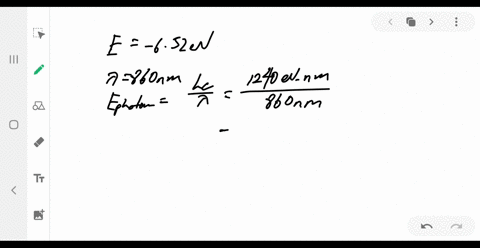 E = -6.52eV
λ = 860nm
Ephoton = hc/λ = 1240 eV.nm/860nm
=
Tt